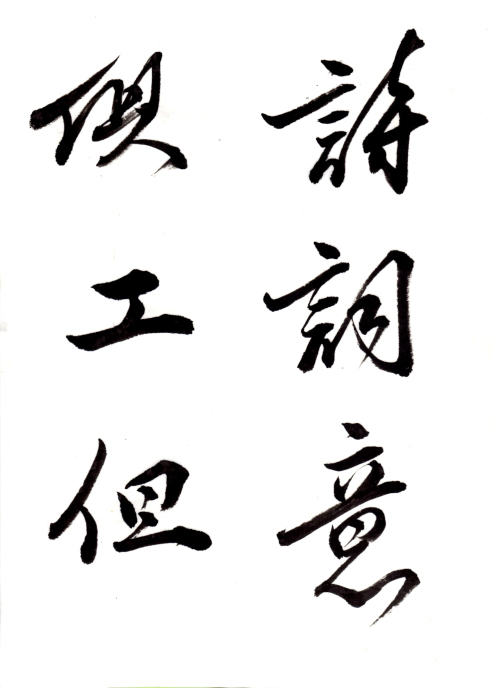 詩詞意
俱工但